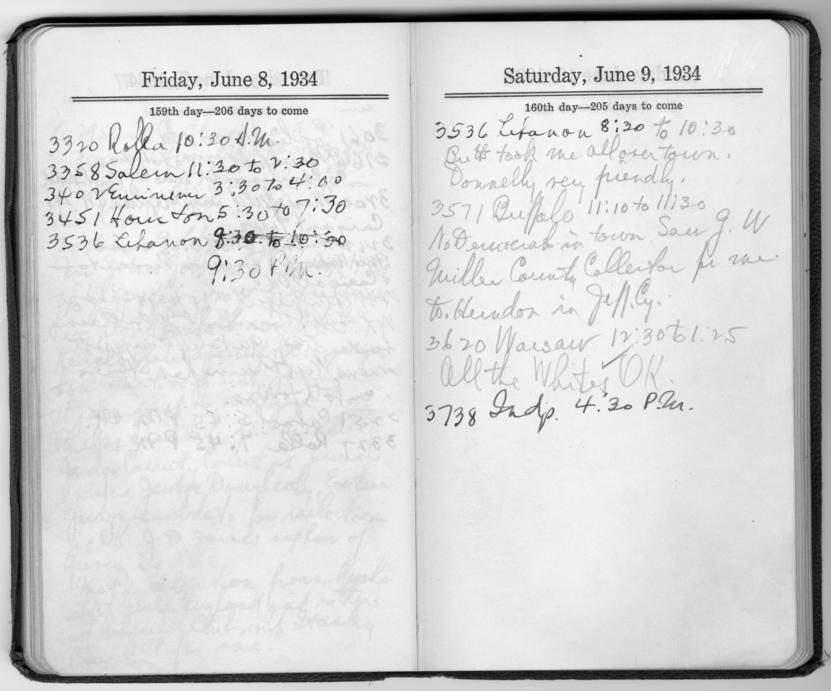 Friday, June 8, 1934
159th day—206 days to come
3320 Rolla 10:30 A.M.
3358 Salem 11:30 to 2:30
3402 Eminence 3:30 to 4:00
3451 Houston 5:30 to 7:30
3536 Lebanon 8:30 to 10:30
9:30 P.M.
Saturday, June 9, 1934
160th day—205 days to come
3536 Lebanon 8:20 to 10:30
took me all over town.
Donnelly very friendly.
3571 Buffalo 11:10 to 11:30
No Democrats in town. Saw J. W
Miller County Collector for me
to Herndon in Jeff. Cy.
3620 Warsaw 12:30 to 1:25
All the Whites OK.
3738 Indp. 4:30 P.M.